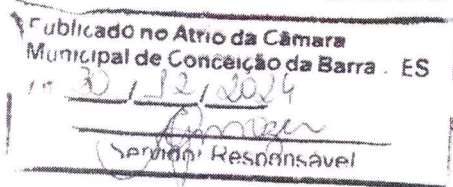 Publicado no Atrio da Câmara
Municipal de Conceição da Barra - ES
30 / 12 / 2024
Servidor Responsável